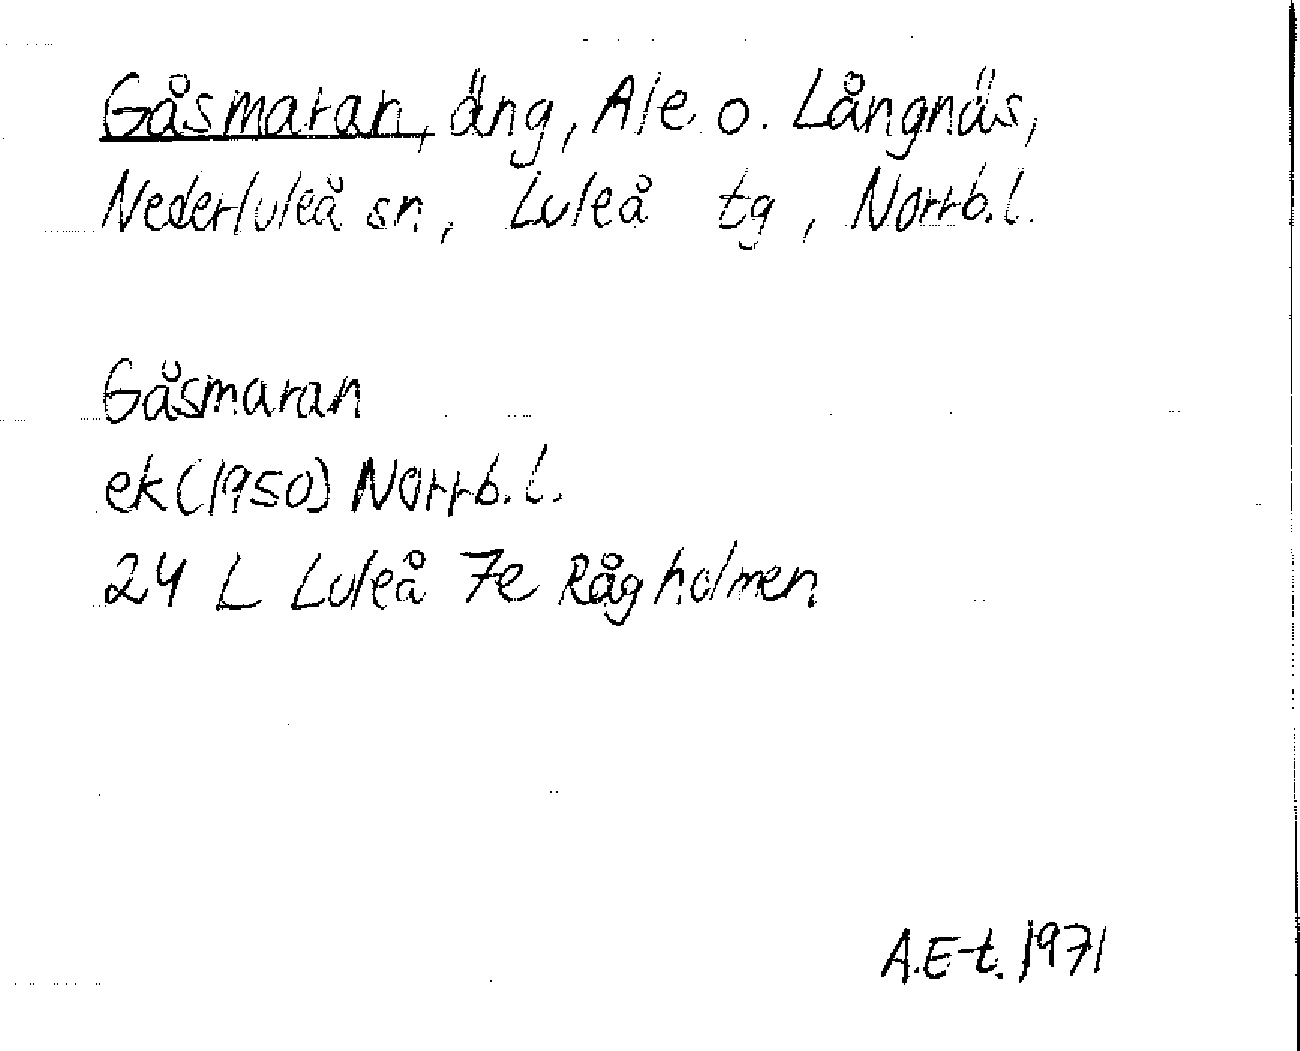 Gåsmaran, äng, Ale o. Långnäs,
Nederluleå sn, Luleå tg, Norrb.l.
Gåsmaran
ek (1950) Norrb.l.
24 L Luleå 7e Rågholmen
A.E-t. 1971